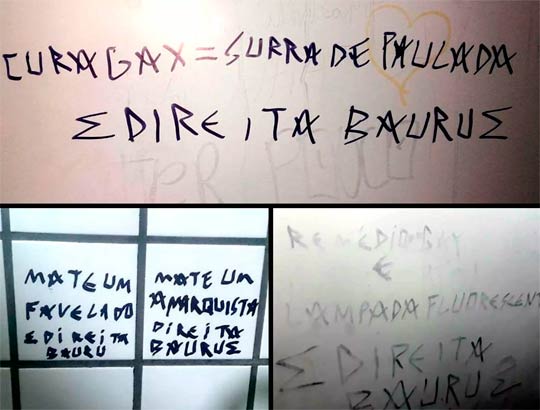 CURA GAY = SURRA DE PAULADA
Σ DIREITA BAURU Σ
MATE UM
FAVELADO
Σ DIREITA
BAURU
MATE UM
ANARQUISTA
DIREITA
BAURU Σ
REMÉDIO GAY
É
LAMPADA FLUORESCENT
Σ DIREITA
BAURU Σ